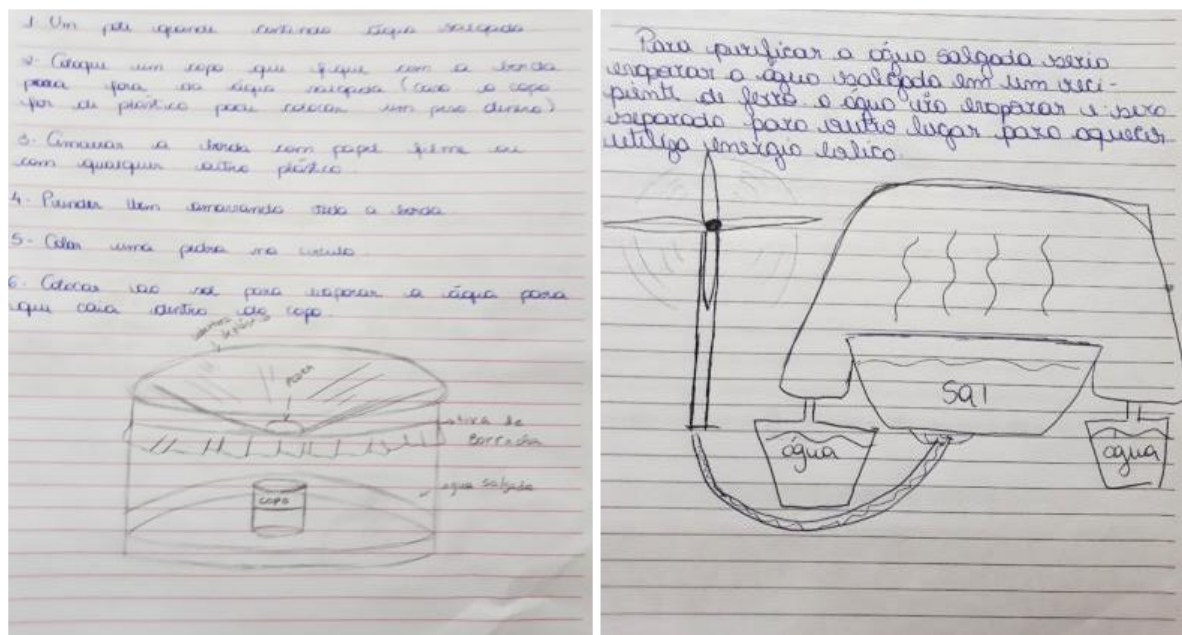 1. Um pote grande contendo água salgada
2. Coloque um copo que fique com a borda
para fora da água salgada (caso o copo
for de plástico pode colocar um peso dentro)
3. Amarrar a borda com papel filme ou
com qualquer outro plástico.
4. Prender bem amarrando toda a borda
5. Colar uma pedra no circulo.
6. Colocar ao sol para evaporar a água para
que caia dentro do copo.
de plástico
pedra
tira de
borracha
água salgada
copo
Para purificar a água salgada seria
evaporar a água salgada em um reci-
piente de ferro. a água irá evaporar e será
separado para outro lugar para aquecer
utiliza energia eolica.
sal
água
água